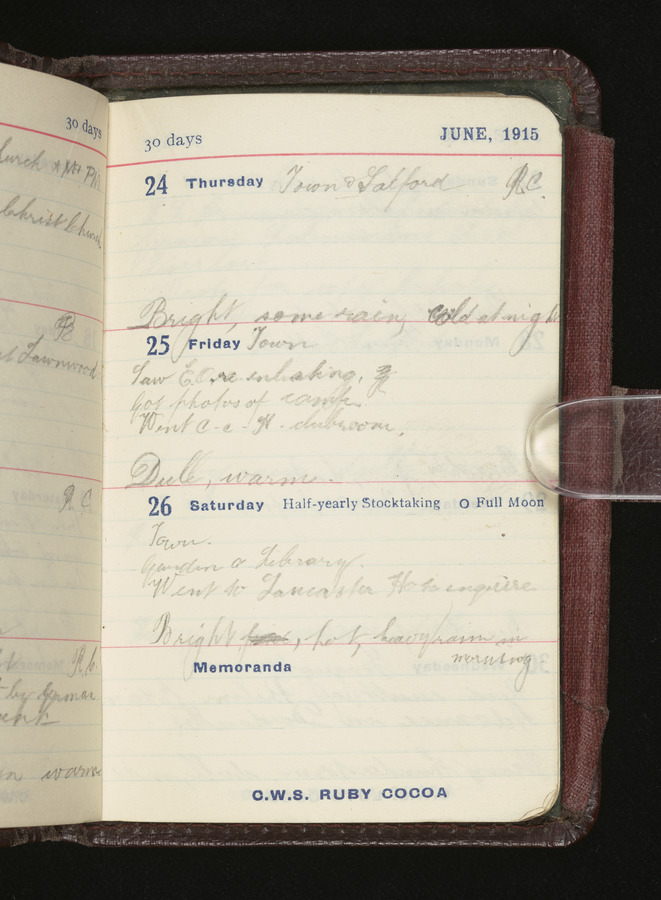 30 days
urch & Mr Phi
Christ Churc
at Lawnwood
R C.
by German
ent
warm
30 days
JUNE, 1915
24 Thursday Town & Salford R.C.
Bright, some rain, cold at night
25 Friday Town
Saw E.C. re enlisting.
Got photos of camp.
Went C-e-H. clubroom.
Dull, warm.
26 Saturday Half-yearly Stocktaking O Full Moon
Town.
Garden & Library.
Went to Lancaster to enquire
Bright, hot, heavy rain in
morning
Memoranda
C.W.S. RUBY COCOA